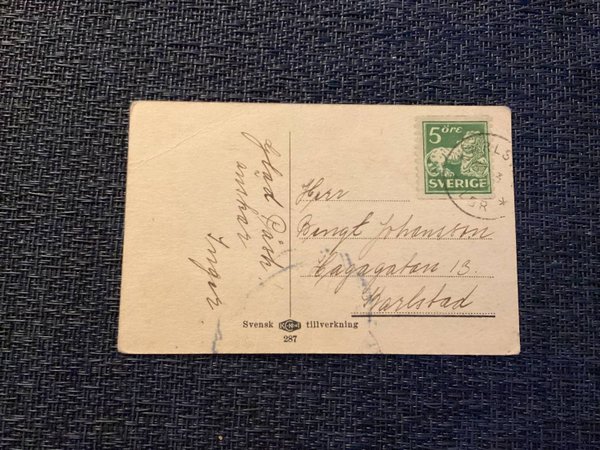 Glad Påsk
önskar
Inger
5 ÖRE
SVERIGE
Herr
Bengt Johansson
Hagagatan 13.
Karlstad
Svensk tillverkning
287